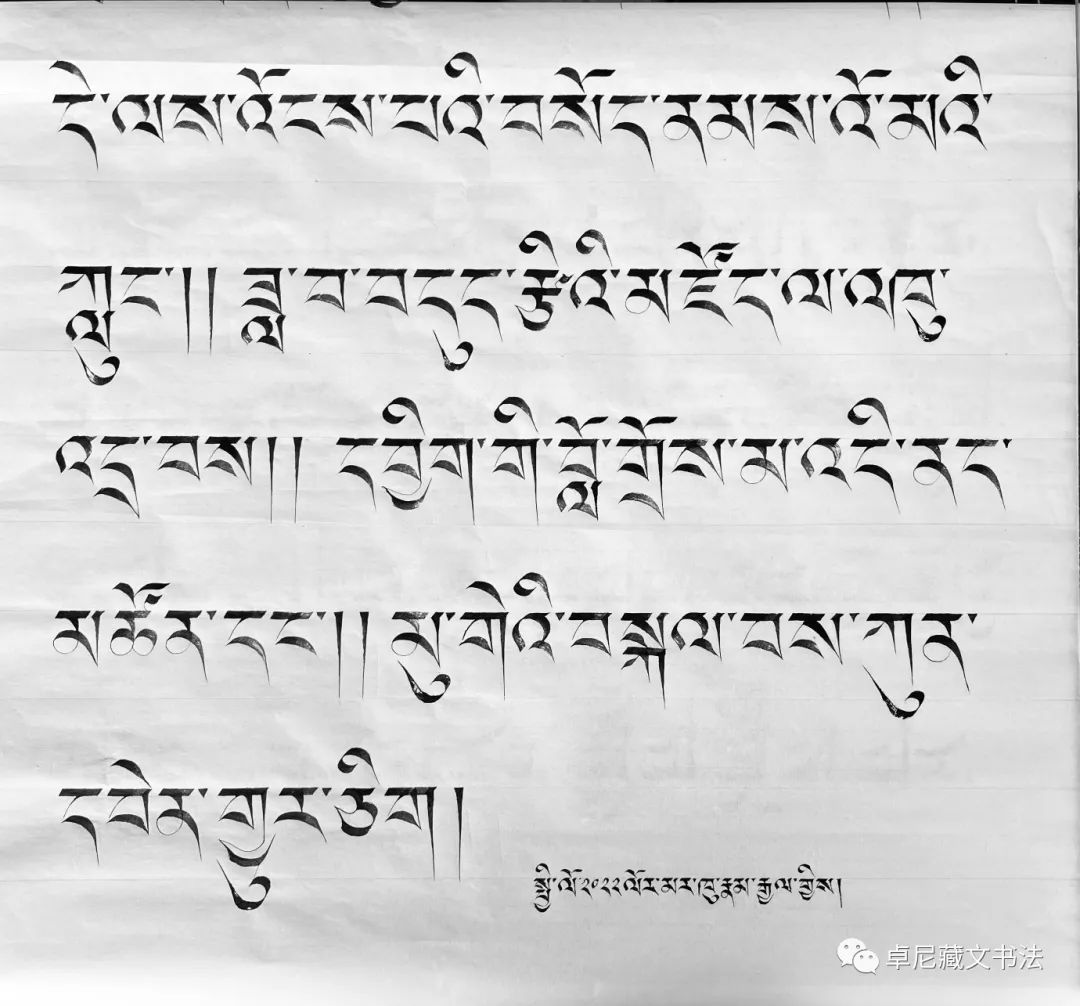 དེ་ལས་འོངས་པའི་བསོད་ནམས་འོ་མའི་
ཀླུང་།། ཟླ་བ་བདུད་རྩིའི་མཛོད་ལ་འཁུ་
འདྲ་བས།། དབྱིག་གི་བློ་གྲོས་མ་འདི་ནད་
མཚོན་དང་།། མུ་གེའི་བསྐལ་བས་ཀུན་
དབེན་གྱུར་ཅིག།
སྤྱི་ལོ་༢༠༢༢ལོར་མར་ཁུ་རྣམ་རྒྱལ་གྱིས།
卓尼藏文书法